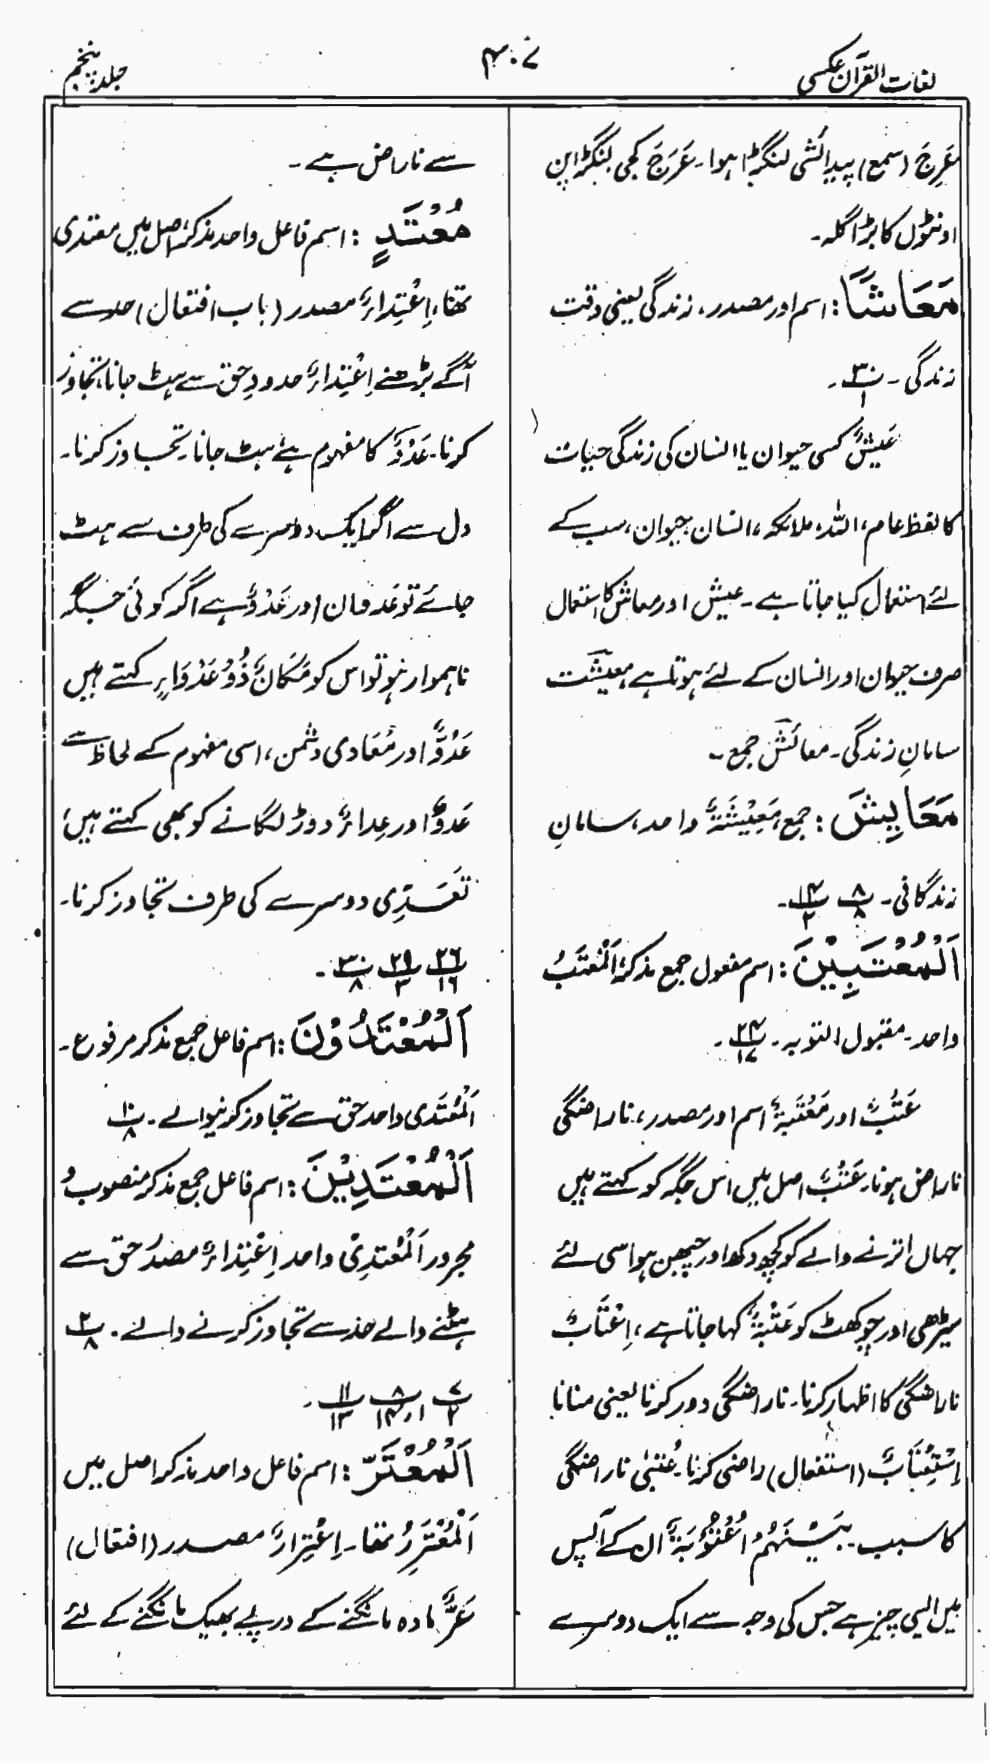 لغات القرآن عکسی
۴۰۷
جلد پنجم
عَرِجَ (سمع) پیدائشی لنگڑا ہوا۔ عَرَجَ کجی لنگڑاپن
اونٹوں کا بڑا گلہ۔
مَعَاشًا: اسم اور مصدر، زندگی یعنی وقت
زندگی۔ ۳۰/۱۔
عَیْشٌ کسی حیوان یا انسان کی زندگی حیات
کا لفظ عام، اللہ، ملائکہ، انسان حیوان، سب کے
لئے استعمال کیا جاتا ہے۔ عیش اور معاش کا استعمال
صرف حیوان اور انسان کے لئے ہوتا ہے معیشت
سامانِ زندگی۔ معائش جمع۔
مَعَایِشَ: جمع، مَعِیْشَۃٌ واحد، سامانِ
زندگانی۔ ۸/۸ ۱۴/۲۔
اَلْمُعْتَبِیْنَ: اسم مفعول جمع مذکر، اَلْمُعْتَبُ
واحد۔ مقبول التوبہ۔ ۲۴/۱۷۔
عَتْبٌ اور مَعْتَبَۃٌ اسم اور مصدر، ناراضگی
ناراض ہونا۔ عَتْبٌ اصل میں اس جگہ کو کہتے ہیں
جہاں اترنے والے کو کچھ دکھ اور چبھن ہو اسی لئے
سیڑھی اور چوکھٹ کو عَتْبَۃٌ کہا جاتا ہے، اِعْتَابٌ
ناراضگی کا اظہار کرنا۔ ناراضگی دور کرنا یعنی منانا
اِسْتِعْتَابٌ (استفعال) راضی کرنا۔ عُتْبیٰ ناراضگی
کا سبب۔ بَیْنَهُمْ اُعْتُوْبَۃٌ ان کے آپس
میں ایسی چیز ہے جس کی وجہ سے ایک دوسرے
سے ناراض ہے۔
مُعْتَدٍ: اسم فاعل واحد مذکر، اصل میں معتدی
تھا، اِعْتِدَاءٌ مصدر (باب افتعال) حد سے
آگے بڑھنے اِعْتِدَاءٌ حدودِ حق سے ہٹ جانا، تجاوز
کرنا۔ عَدْوٌ کا مفہوم ہے ہٹ جانا۔ تجاوز کرنا۔
دل سے اگر ایک دوسرے کی طرف سے ہٹ
جائے تو عَدوان اور عَدْوٌ ہے اگر کوئی جگہ
ناہموار ہو تو اس کو مَکَانٌ ذُوْ عَدْوَاءٍ کہتے ہیں
عَدُوٌّ اور مُعَادی دشمن، اسی مفہوم کے لحاظ سے
عَدْوٌ اور عِداءٌ دوڑ لگانے کو بھی کہتے ہیں،
تَعَدِّی دوسرے کی طرف تجاوز کرنا۔
۲۶/۱۶ ۲۹/۳ ۳۰/۸۔
اَلْمُعْتَدُوْنَ: اسم فاعل جمع مذکر مرفوع۔
اَلْمُعْتَدی واحد حق سے تجاوز کرنیوالے۔ ۱۰/۸
اَلْمُعْتَدِیْنَ: اسم فاعل جمع مذکر منصوب و
مجرور اَلْمُعْتَدِیْ واحد اِعْتِدَاءٌ مصدر حق سے
ہٹنے والے حد سے تجاوز کرنے والے۔ ۲/۸
۷/۲ ۸/۱،۱۴ ۱۱/۱۳۔
اَلْمُعْتَرَّ: اسم فاعل واحد مذکر اصل میں
اَلْمُعْتَرِرُ تھا۔ اِعْتِرارٌ مصدر (افتعال)
عَرٌّ مادہ مانگنے کے درپے بھیک مانگنے کے لئے